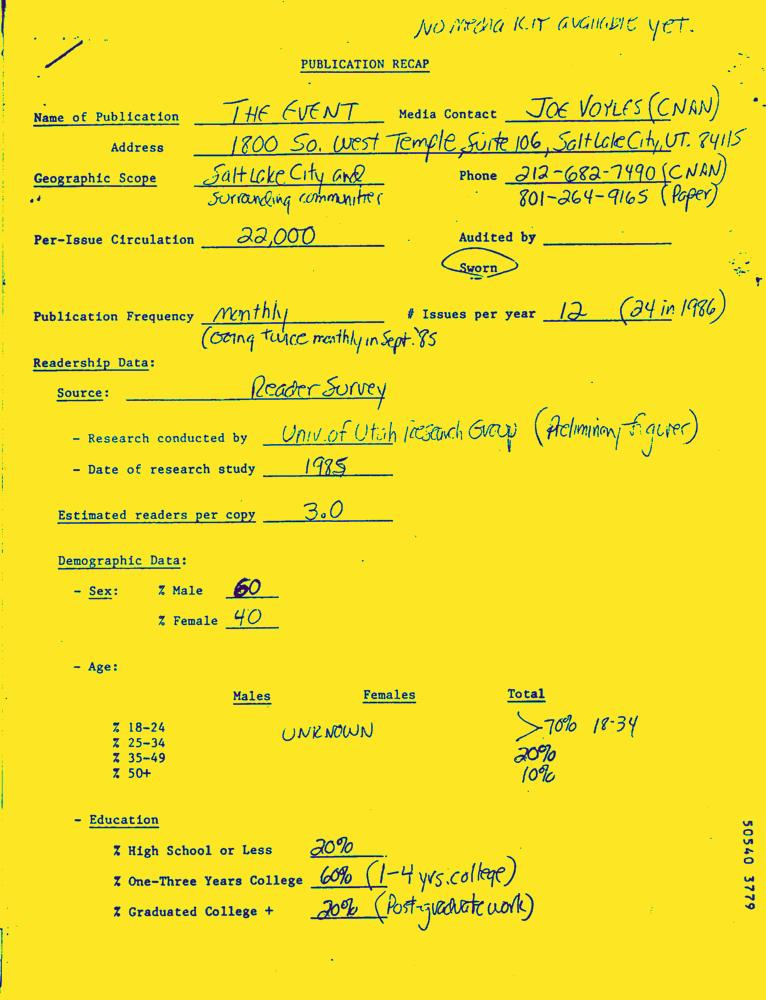 NO MEDIA KIT AVAILABLE YET.
PUBLICATION RECAP
Name of Publication THE EVENT Media Contact JOE VOYLES (CNAN)
Address 1800 So. West Temple, Suite 106, Salt Lake City, UT. 84115
Geographic Scope Salt Lake City and Phone 212-682-7490 (CNAN)
surrounding communities 801-264-9165 (Paper)
Per-Issue Circulation 22,000 Audited by
Sworn
Publication Frequency Monthly # Issues per year 12 (24 in 1986)
(Going twice monthly in Sept. '85
Readership Data:
Source: Reader Survey
- Research conducted by Univ. of Utah Research Group (Preliminary figures)
- Date of research study 1985
Estimated readers per copy 3.0
Demographic Data:
- Sex: % Male 60
% Female 40
- Age:
Males Females Total
% 18-24 UNKNOWN >70% 18-34
% 25-34
% 35-49 20%
% 50+ 10%
- Education
% High School or Less 20%
% One-Three Years College 60% (1-4 yrs. college)
% Graduated College + 20% (Post-graduate work)
50540 3779